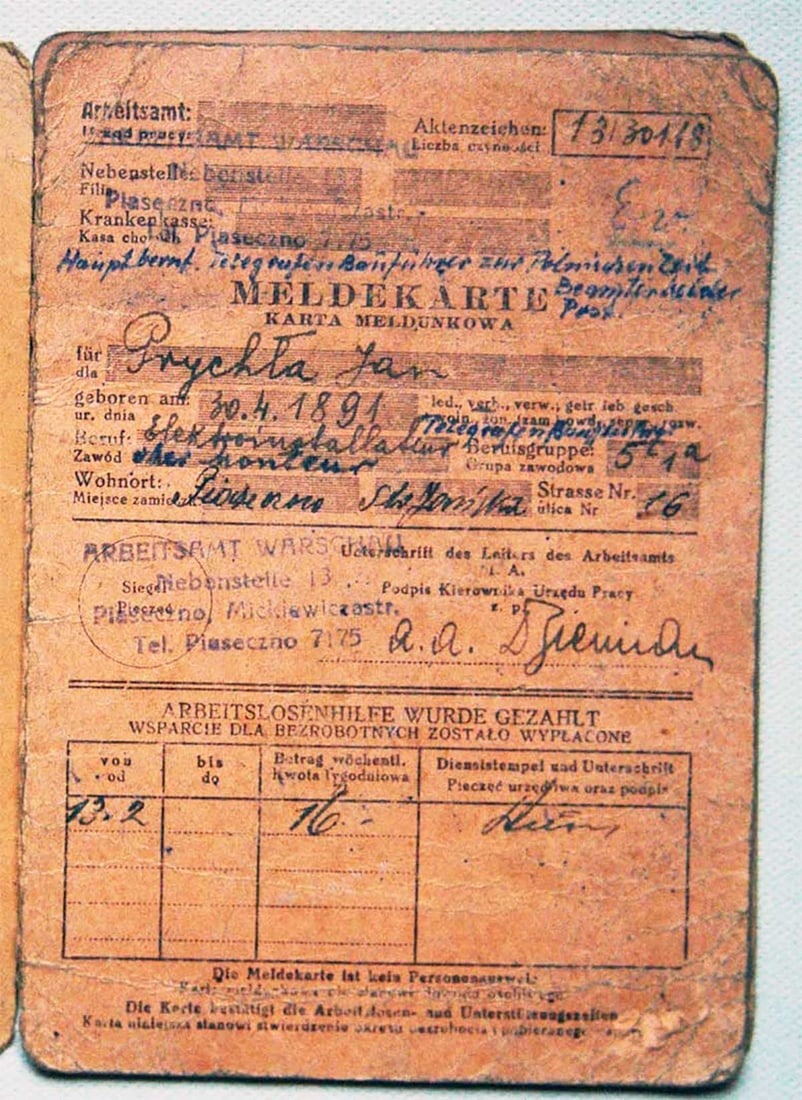 Arbeitsamt:
Urząd pracy:
ARBEITSAMT WARSCHAU
Aktenzeichen: 13/30118
Liczba czynności
Nebenstelle: Nebenstelle 13
Filia
Piaseczno,
Krankenkasse:
Kasa chorych Tel. Piaseczno 7175
Hauptberuf. Telegrafen Bauführer zur Polnischen Zeit
Beamter bei der
Post.
MELDEKARTE
KARTA MELDUNKOWA
für
dla Prychła Jan
geboren am: 30.4.1891 led., verh., verw., getr leb gesch
ur. dnia
Telegrafen Bauführer
Beruf: Elektroinstallateur Berufsgruppe: 5c1a
Zawód Grupa zawodowa
Wohnort: Piaseczno Strasse Nr. 16
Miejsce zamieszk. ulica Nr
ARBEITSAMT WARSCHAU
Unterschrift des Leiters des Arbeitsamts
I. A.
Siegel
Pieczęć
Nebenstelle 13
Podpis Kierownika Urzędu Pracy
z. p.
Piaseczno, Mickiewiczastr.
Tel. Piaseczno 7175
ARBEITSLOSENHILFE WURDE GEZAHLT
WSPARCIE DLA BEZROBOTNYCH ZOSTAŁO WYPŁACONE
von bis Betrag wöchentl. Dienststempel und Unterschrift
od do Kwota tygodniowa Pieczęć urzędowa oraz podpis
13.2 16.-
Die Meldekarte ist kein Personenausweis
Karta meldunkowa nie stanowi dowodu osobistego
Die Karte bestätigt die Arbeitslosen- und Unterstützungszeiten
Karta niniejsza stanowi stwierdzenie okresu bezrobocia i pobieranego